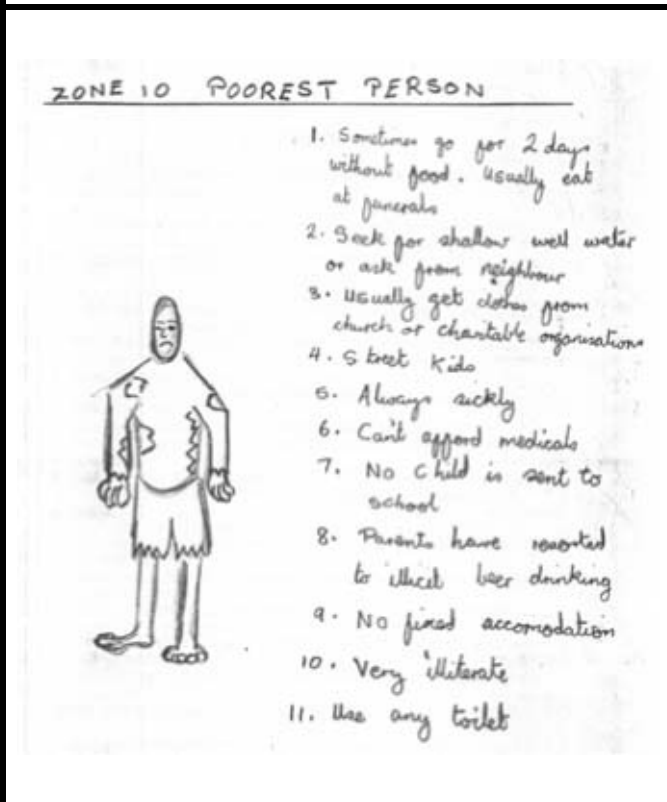 ZONE 10 POOREST PERSON
1. Sometimes go for 2 days
without food. Usually eat
at funerals
2. Seek for shallow well water
or ask from neighbour
3. Usually get clothes from
church or charitable organisations
4. Street Kids
5. Always sickly
6. Can't afford medicals
7. No Child is sent to
school
8. Parents have resorted
to illicit beer drinking
9. No fixed accomodation
10. Very illiterate
11. Use any toilet